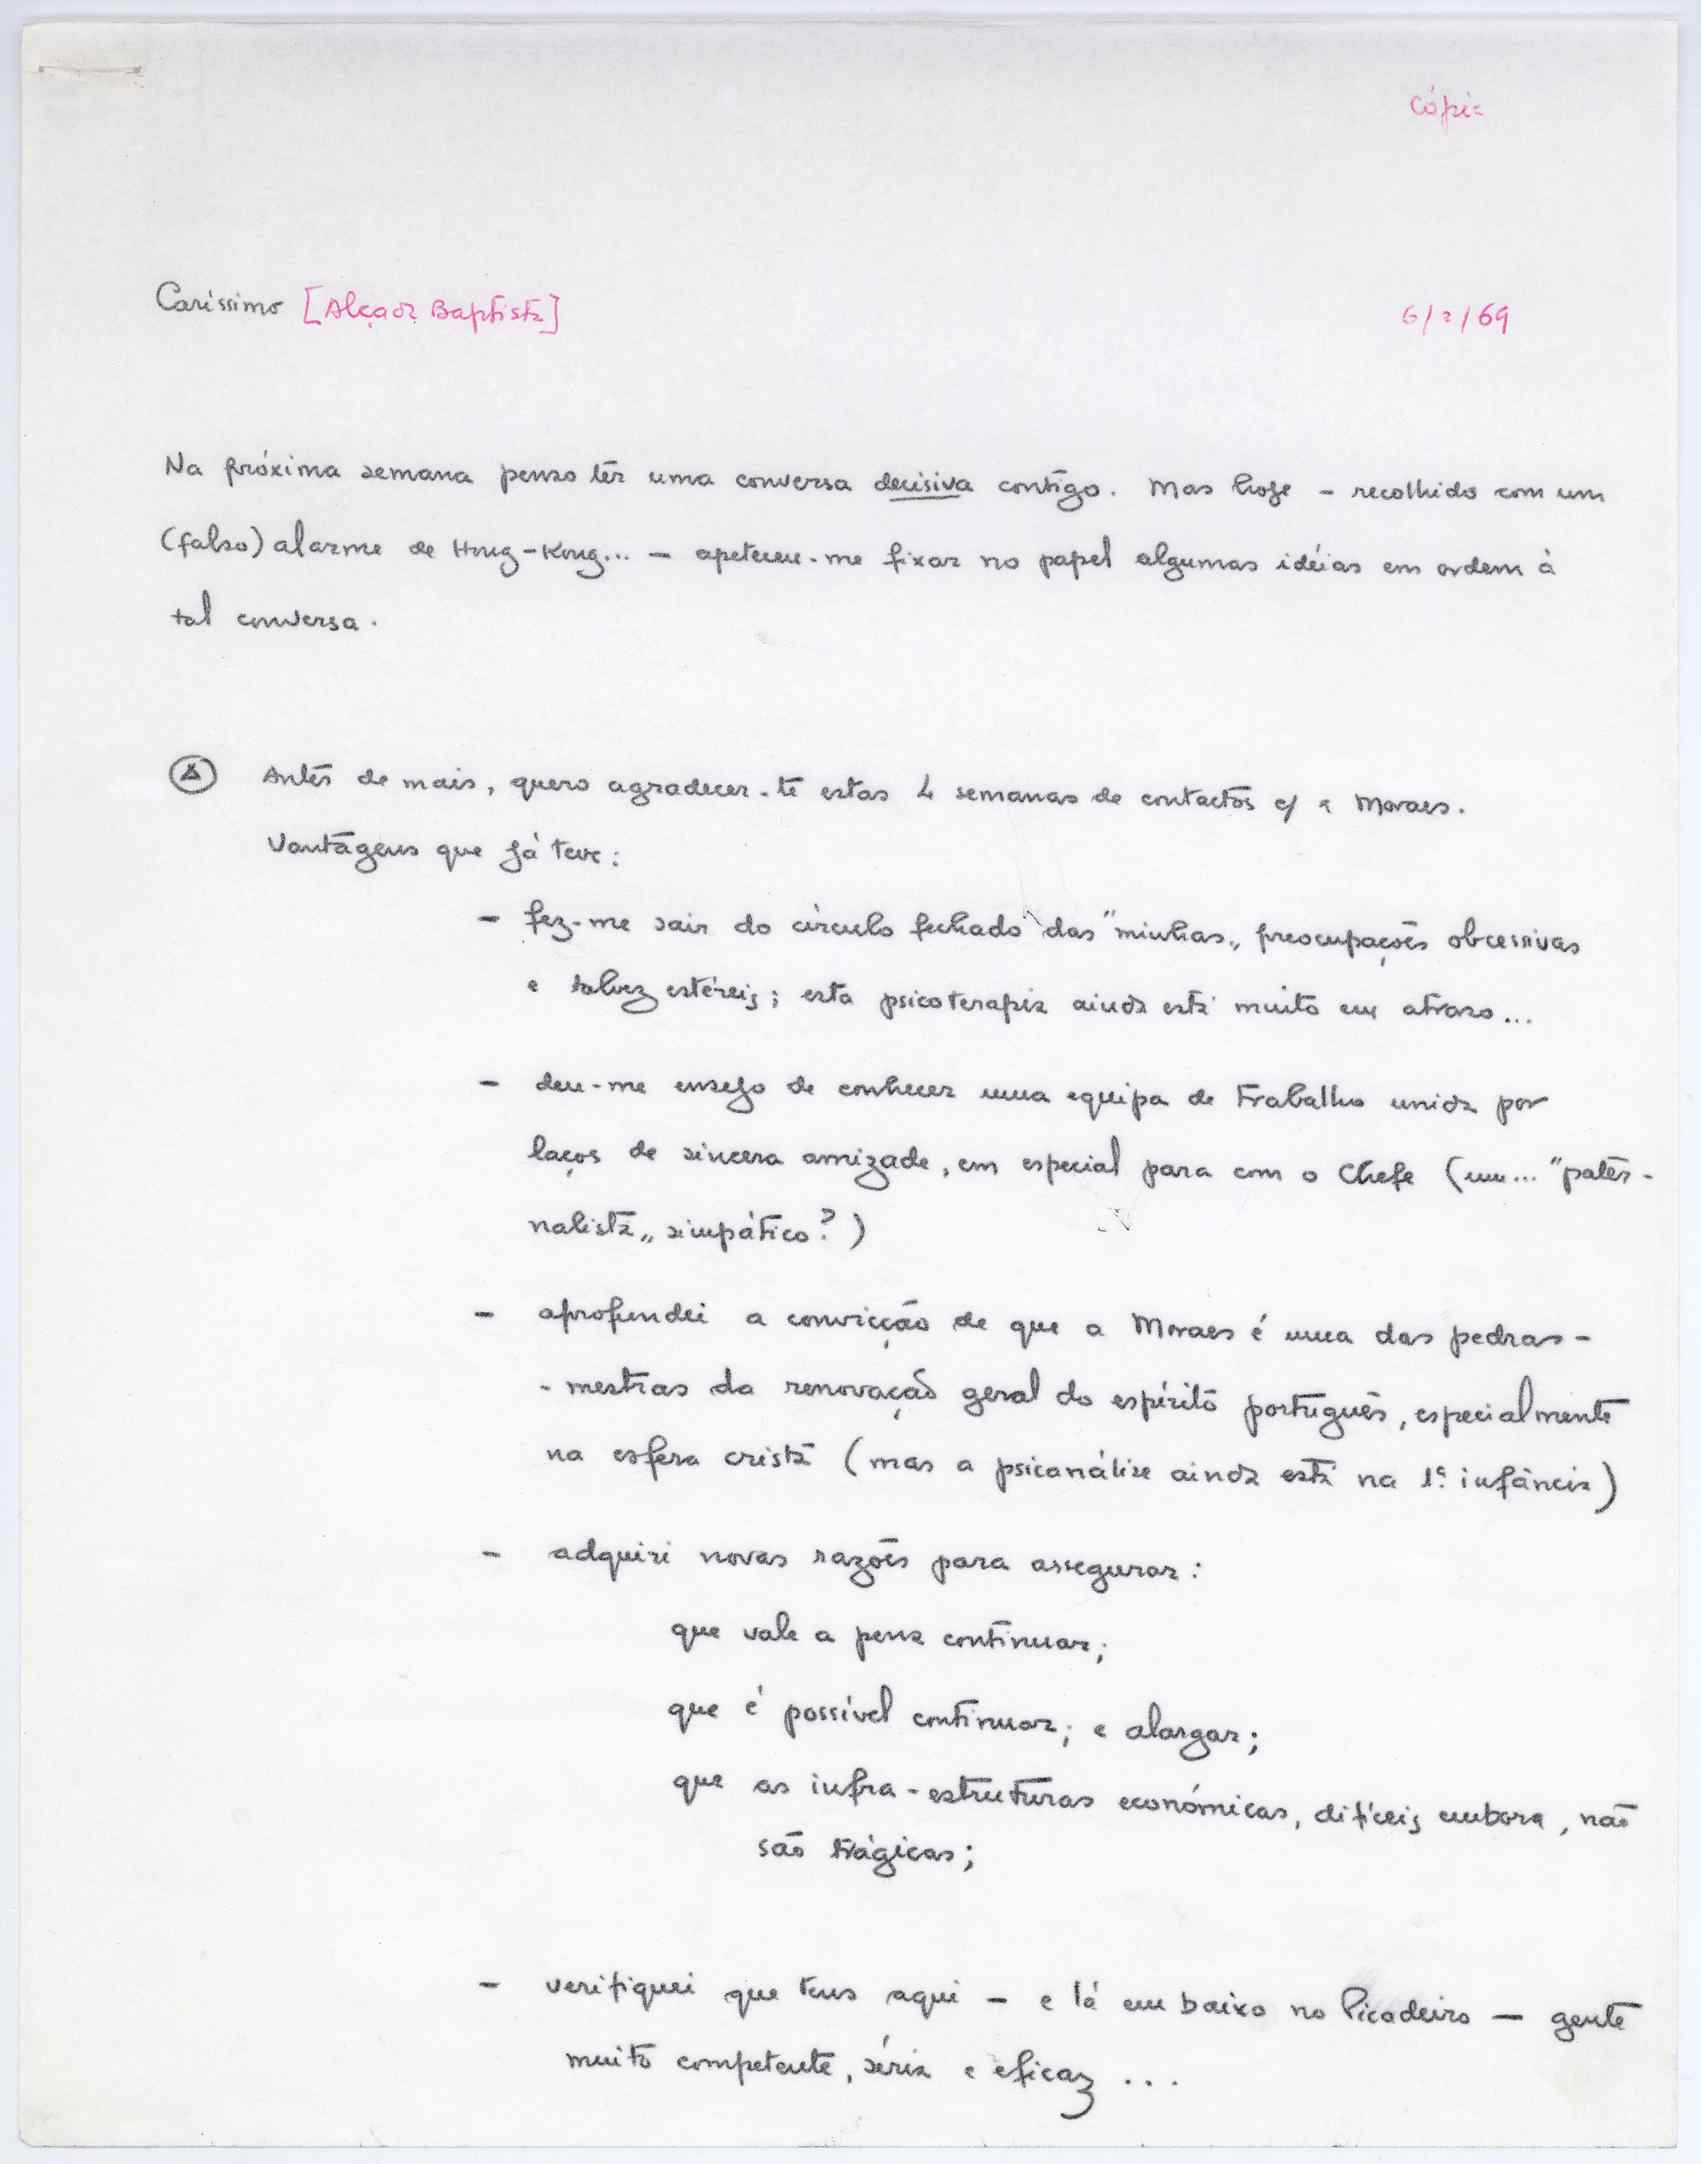 Cópia
Caríssimo [Alçada Baptista] 6/2/69
Na próxima semana penso ter uma conversa decisiva contigo. Mas hoje – recolhido com um
(falso) alarme de Hong-Kong... – apeteceu-me fixar no papel algumas idéias em ordem à
tal conversa.
A Antes de mais, quero agradecer-te estas 4 semanas de contactos c/ a Moraes.
Vantagens que já teve:
– fez-me sair do círculo fechado das "minhas" preocupações obcessivas
e talvez estéreis; esta psicoterapia ainda está muito em atraso...
– deu-me ensejo de conhecer uma equipa de trabalho unida por
laços de sincera amizade, em especial para com o Chefe (um... "pater-
nalista" simpático?)
– aprofundei a convicção de que a Moraes é uma das pedras-
-mestras da renovação geral do espírito português, especialmente
na esfera cristã (mas a psicanálise ainda está na 1ª infância)
– adquiri novas razões para assegurar:
que vale a pena continuar;
que é possível continuar; e alargar;
que as infra-estruturas económicas, difíceis embora, não
são trágicas;
– verifiquei que tens aqui – e lá em baixo no Picadeiro – gente
muito competente, séria e eficaz ...